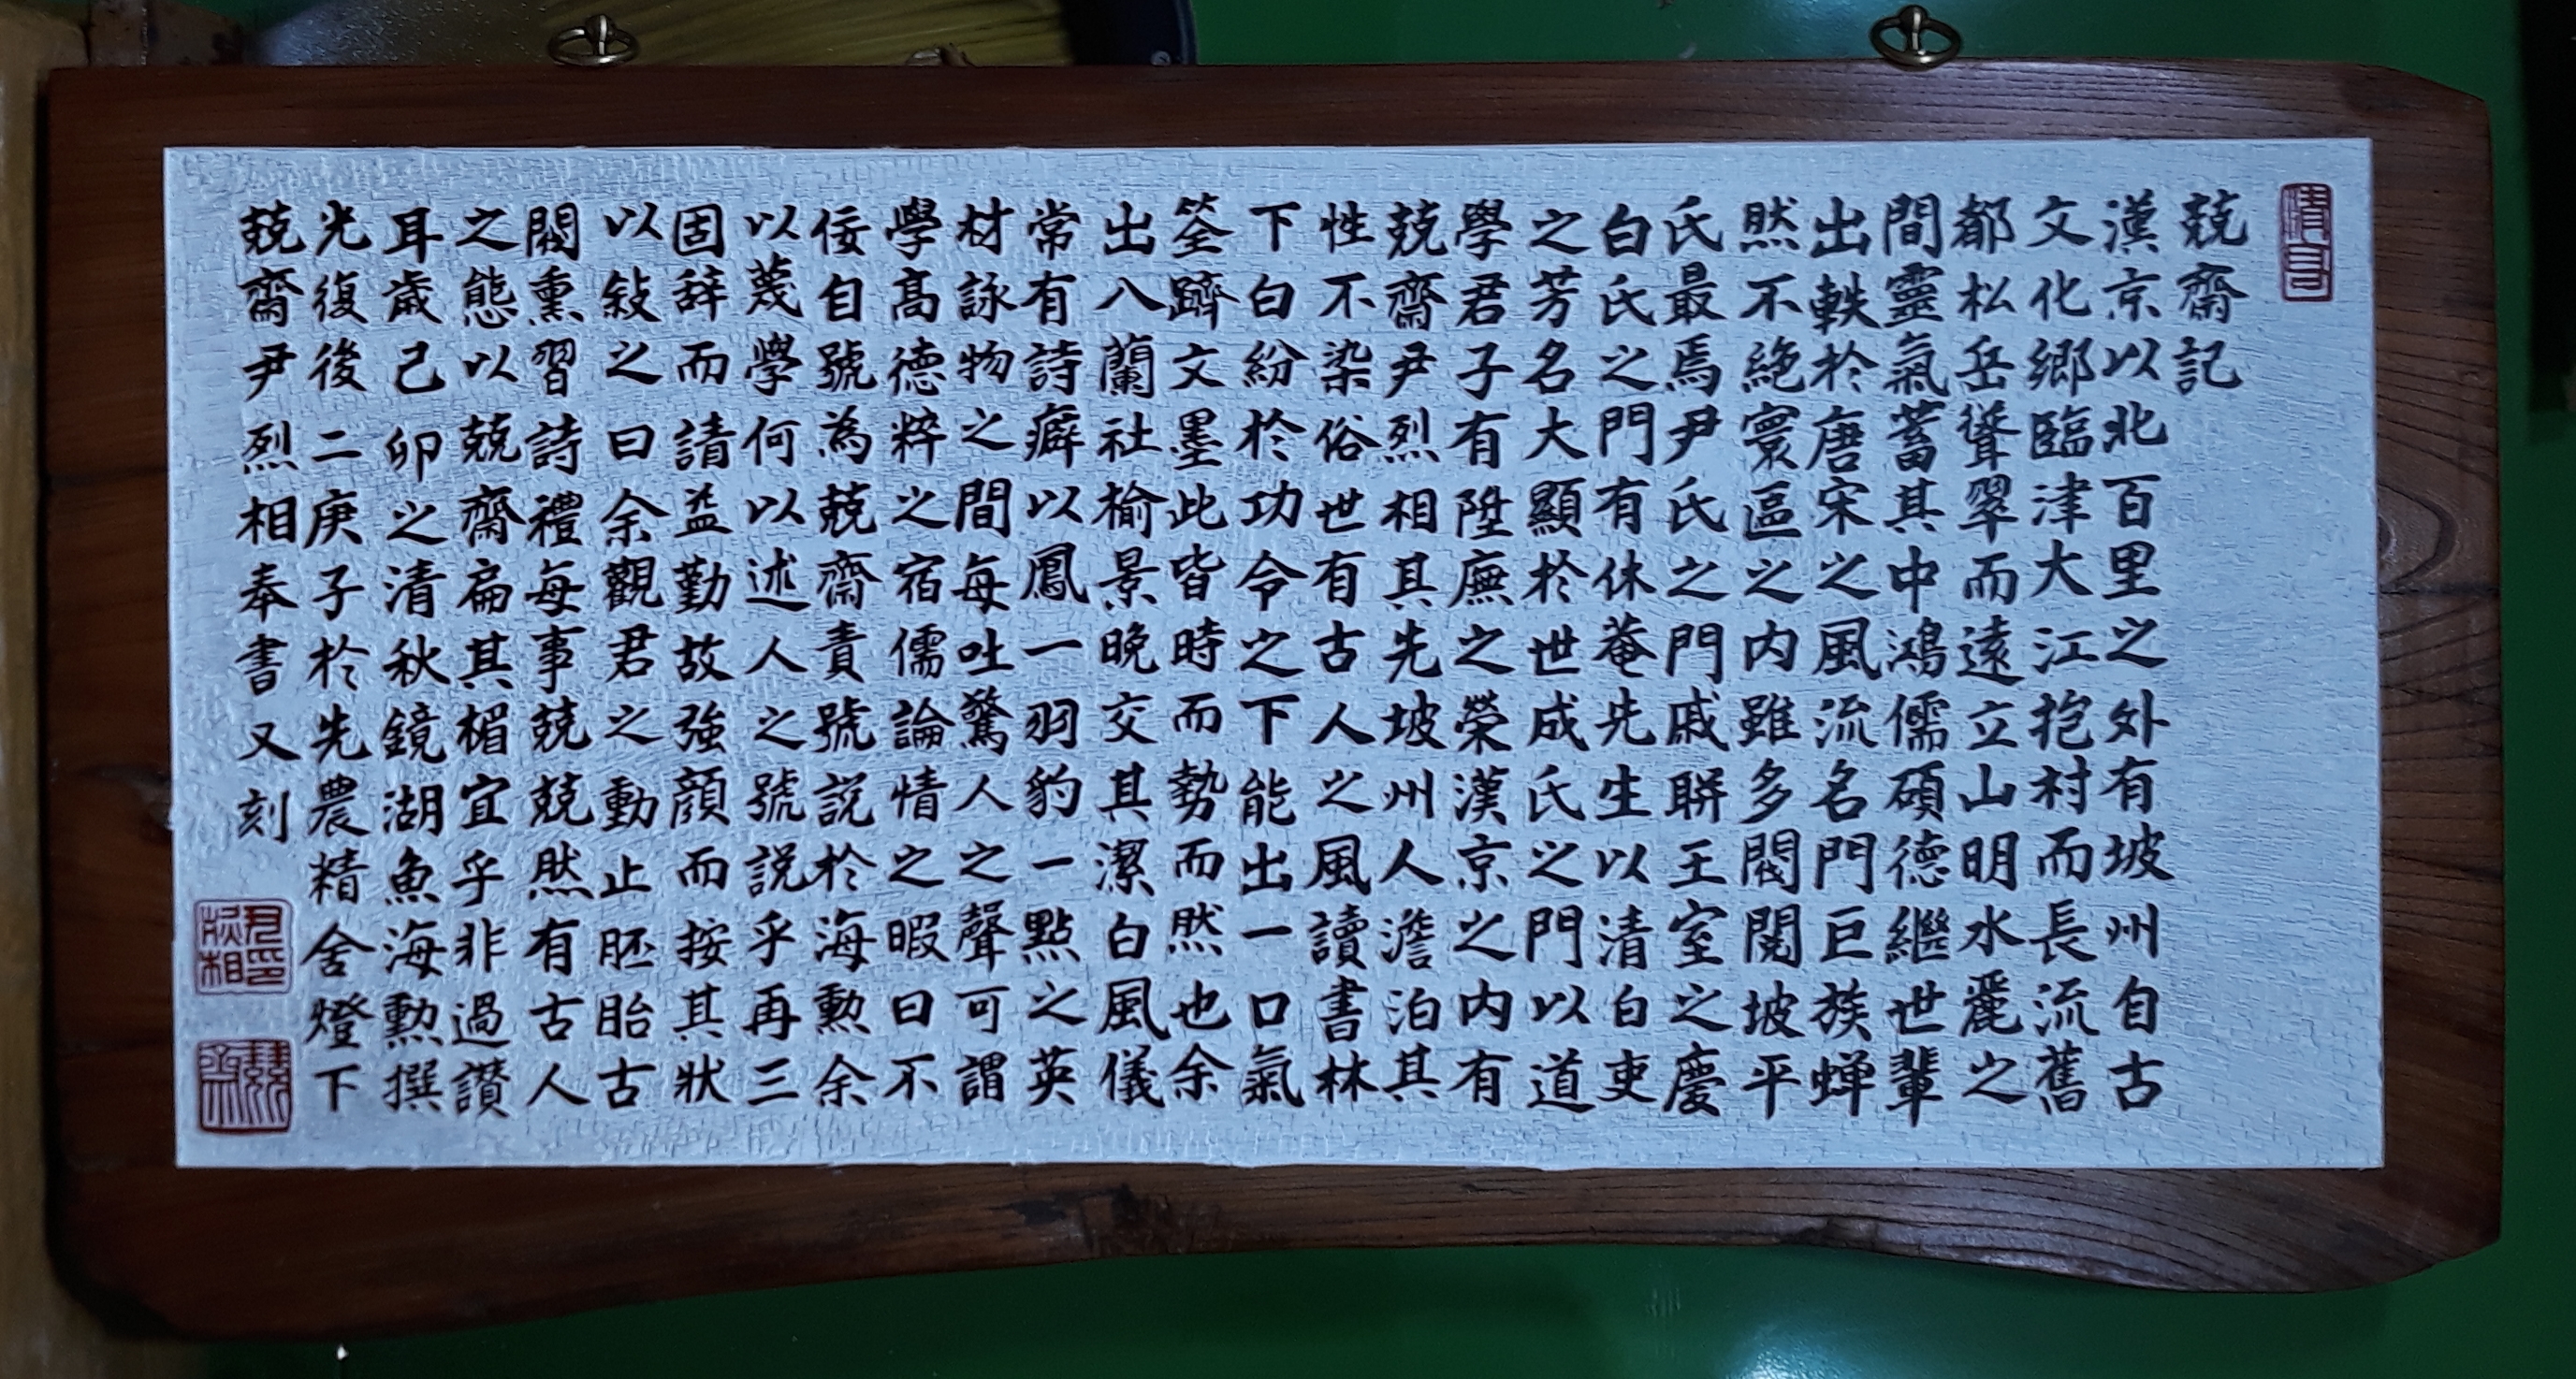 兢齋記
漢京以北百里之外有坡州自古
文化鄉臨津大江抱村而長流舊
都松岳聳翠而遠立山明水麗之
間靈氣蓄其中鴻儒碩德繼世輩
出軼於唐宋之風流名門巨族蟬
然不絶寰區之内雖多閥閱坡平
氏最焉尹氏之門戚聯王室之慶
白氏之門有休菴先生以清白吏
之芳名大顯於世成氏之門以道
學君子有陞廡之榮漢京之内有
兢齋尹烈相其先坡州人澹泊其
性不染俗世有古人之風讀書林
下白紛於功令之下能出一口氣
筌蹄文墨此皆時而勢而然也余
出八蘭社榆景晚交其潔白風儀
常有詩癖以鳳一羽豹一點之英
材詠物之間每吐驚人之聲可謂
學高德粹之宿儒論情之暇曰不
佞自號為兢齋責號説於海勲余
以蔑學何以述人之號説乎再三
固辞而請益勤故強顔而按其狀
以敍之曰余觀君之動止胚胎古
閥熏習詩禮每事兢兢然有古人
之態以兢齋扁其楣宜乎非過讃
耳歳己卯之清秋鏡湖魚海勲撰
光復後二庚子於先農精舍燈下
兢齋尹烈相奉書又刻
尹烈相印
兢齋